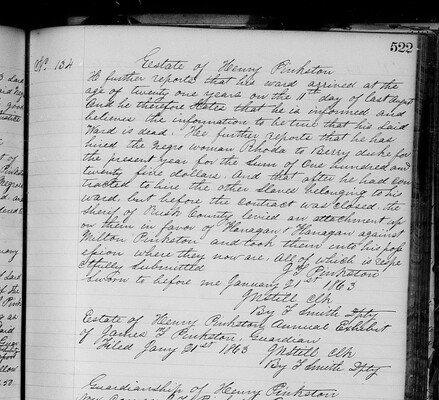 522
No. 134
Estate of Henry Pinkston
He further reports that his ward arrived at the
age of twenty one years on the 11th day of last August
and he therefore states that he is informed and
believes the information to be true that his said
Ward is dead. He further reports that he has
hired the negro woman Rhoda to Berry duke for
the present year for the Sum of One hundred and
twenty five dollars. And that after he had con
tracted to hire the other Slaves belonging to his
ward, but before the Contract was closed, the
Sherif of Rusk County levied an attachment up
on them in favor of Flanagan & Flanagan against
Milton Pinkston and took them into his poss
ession where they now are. All of which is respe
ctfully Submitted
J F Pinkston
Sworn to before me January 21st 1863
Clk
By F Smith Dpty
Estate of Henry Pinkston, Annual Exhibit
of James F Pinkston, Guardian
Filed Jany 21st 1863
Clk
By F Smith Dpty
Guardianship of Henry Pinkston